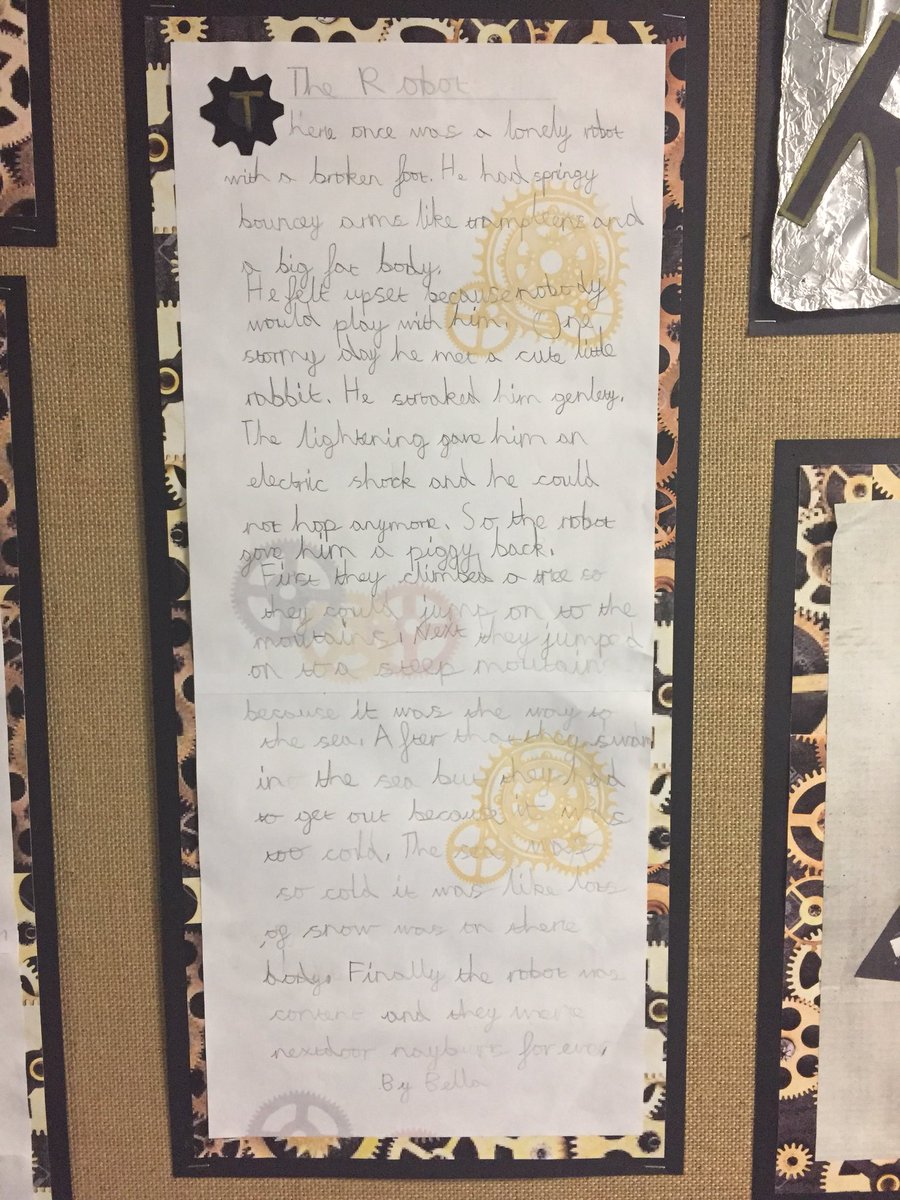 The Robot
There once was a lonely robot
with a broken foot. He had springy
bouncey arms like trampleens and
a big fat body.
He felt upset because nobody
would play with him. One
stormy day he met a cute little
rabbit. He stroaked him genley.
The lightening gave him an
electric shock and he could
not hop anymore. So the robot
gave him a piggy back.
First they climbed a tree so
they could jump on to the
moutains. Next they jumped
on to a steep moutain
because it was the way to
the sea. After that they swam
in the sea but they had
to get out because it was
too cold. The sea was
so cold it was like lots
of snow was on there
body. Finally the robot was
content and they were
nextdoor nayburs forever.
By Bella